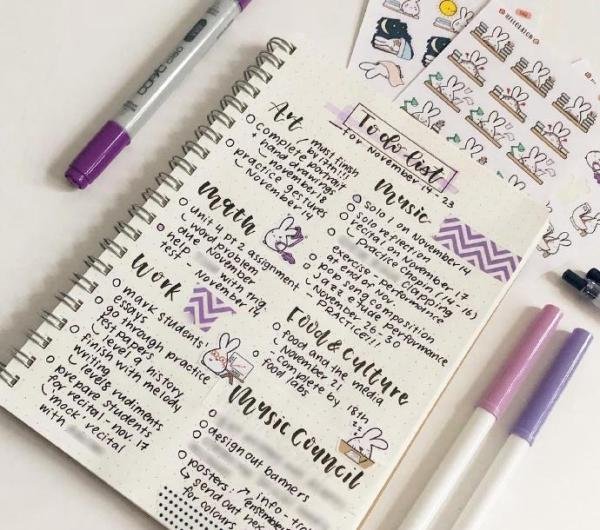 COPIC ciao
To do list
for November 14 - 23
Art
complete portrait
must finish
by 17th!!!
hand drawings
november 18
practice gestures
November 14
Math
unit 4 pt 2 assignment
word problem
due November
help with trig
test - November 14
Work
mark students'
essays
go through practice
test papers
level 9 history
finish with melody
writing
levels rudiments
prepare students
for recital - nov. 17
mock recital
with
Music
solo 1 on November 14
solo reflection
recital on November 17
Practice Chopin (14-16)
clapping
exercise - performance
at end of Nov.
pop song composition
Jazz Etude performance
November 26-30
PRACTICE!!!
Food & Culture
food and the media
November 21
complete by 18th
food labs
Music Council
design out banners
posters: info - 
"ensemble
send out hex
for colours